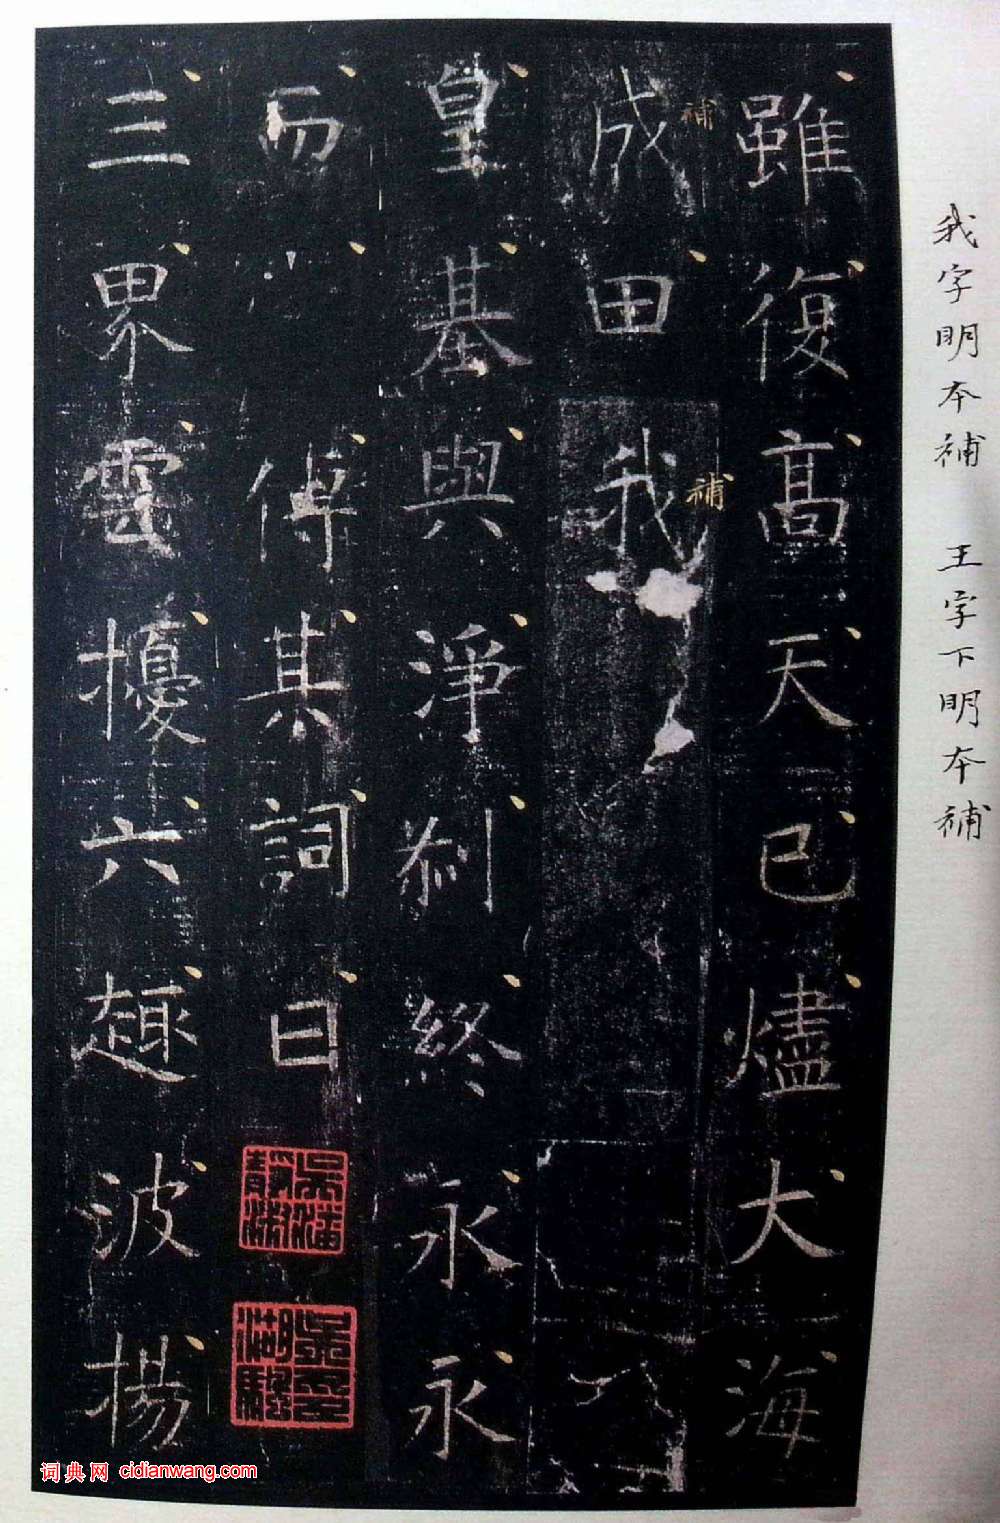 我字明本補 王字下明本補
雖復高天已燼大海
成補田我補
皇基與淨剎終永永
而傳其詞曰
三界雲擾六趣波揚
词典网 cidianwang.com